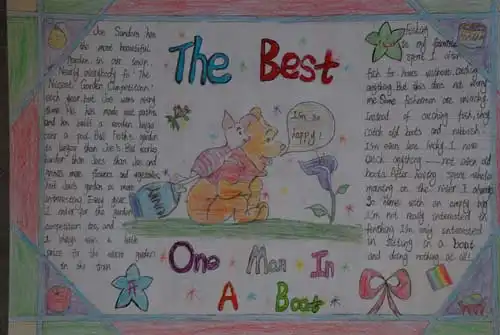 The Best
Joe Sanders has
the most beautiful
garden in our town.
Nearly everybody
'The
Nicest Garden Competition'
each year, but Joe wins every
time.
and Joe build a wooden
over a pool. Bill Frith's garden
is larger than Joe's. Bill works
harder than Joe and
grows more flowers and vegetables,
but Joe's garden is more
interesting.
I enter for the garden
competition too, and
I always win a little
prize for the worst garden
in the town
I'm so
happy!
Fishing
is my favorite
sport. I often
fish for hours without catching
anything. But this does not worry
me. Some fishermen are unlucky.
Instead of catching fish, they
catch old boots and rubbish.
I'm even less lucky. I never
catch anything — not even old
boots. After having spent whole
morning on the river I always
Go home with an empty bag
I'm not really interested in
fishing. I'm only interested
in sitting in a boat
and doing nothing at all!
One Man In
A Boat